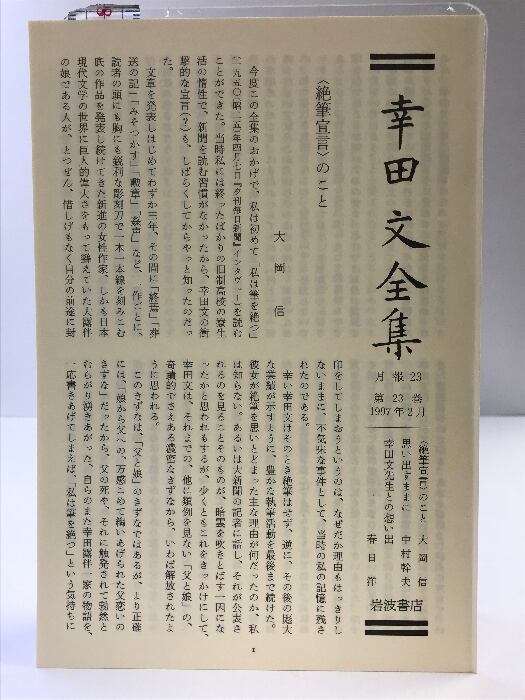 幸田文全集
月報23
第23巻
1997年2月
〈絶筆宣言〉のこと 大岡信
思い出すままに 中村幹夫
幸田文先生との想い出
春日洋
岩波書店
〈絶筆宣言〉のこと
大岡信
今度この全集のおかげで、私は初めて「私は筆を絶つ」
（一九五〇〈昭二五〉年四月七日『夕刊毎日新聞』インタヴュー）を読む
ことができた。当時私には終ったばかりの旧制高校の寮生
活の惰性で、新聞を読む習慣がなかったから、幸田文の衝
撃的な宣言（？）も、しばらくしてからやっと知ったのだっ
た。
文章を発表しはじめてわずか三年、その間に「終焉」「葬
送の記」「みそつかす」「勲章」「姦声」など、一作ごとに、
読者の頭にも胸にも鋭利な彫刻刀で一木一本線を刻みこむ
底の作品を発表し続けてきた新進の女性作家、しかも日本
現代文学の世界に巨人的偉大さをもって聳えていた大露伴
の娘である人が、とつぜん、惜しげもなく自分の前途に封
印をしてしまおうというのは、なぜだか理由もはっきりし
ないままに、不気味な事件として、当時の私の記憶に残さ
れたのである。
幸い幸田文はそのとき絶筆はせず、逆に、その後の厖大
な業績が示すように、豊かな執筆活動を最後まで続けた。
彼女が絶筆を思いとどまった主な理由が何だったのか、私
は知らない。あるいは大新聞の記者に話し、それが公表さ
れるのを見ることそのものが、暗雲を吹きとばす一因にな
ったかと思われもするが、少くともこれをきっかけにして、
幸田文は、それまでの、他に類例を見ない「父と娘」の、
奇蹟的でさえある濃密なきずなから、いわば解放されたよ
うに思われる。
このきずなは、「父と娘」のきずなではあるが、より正確
には、「娘から父への、万感こめて綯いあげられた父恋いの
きずな」だったから、父の死や、それに触発されて勃然と
むらがり湧きあがった、自らのまた幸田露伴一家の物語を、
一応書きあげてしまえば、「私は筆を絶つ」という気持ちに
1